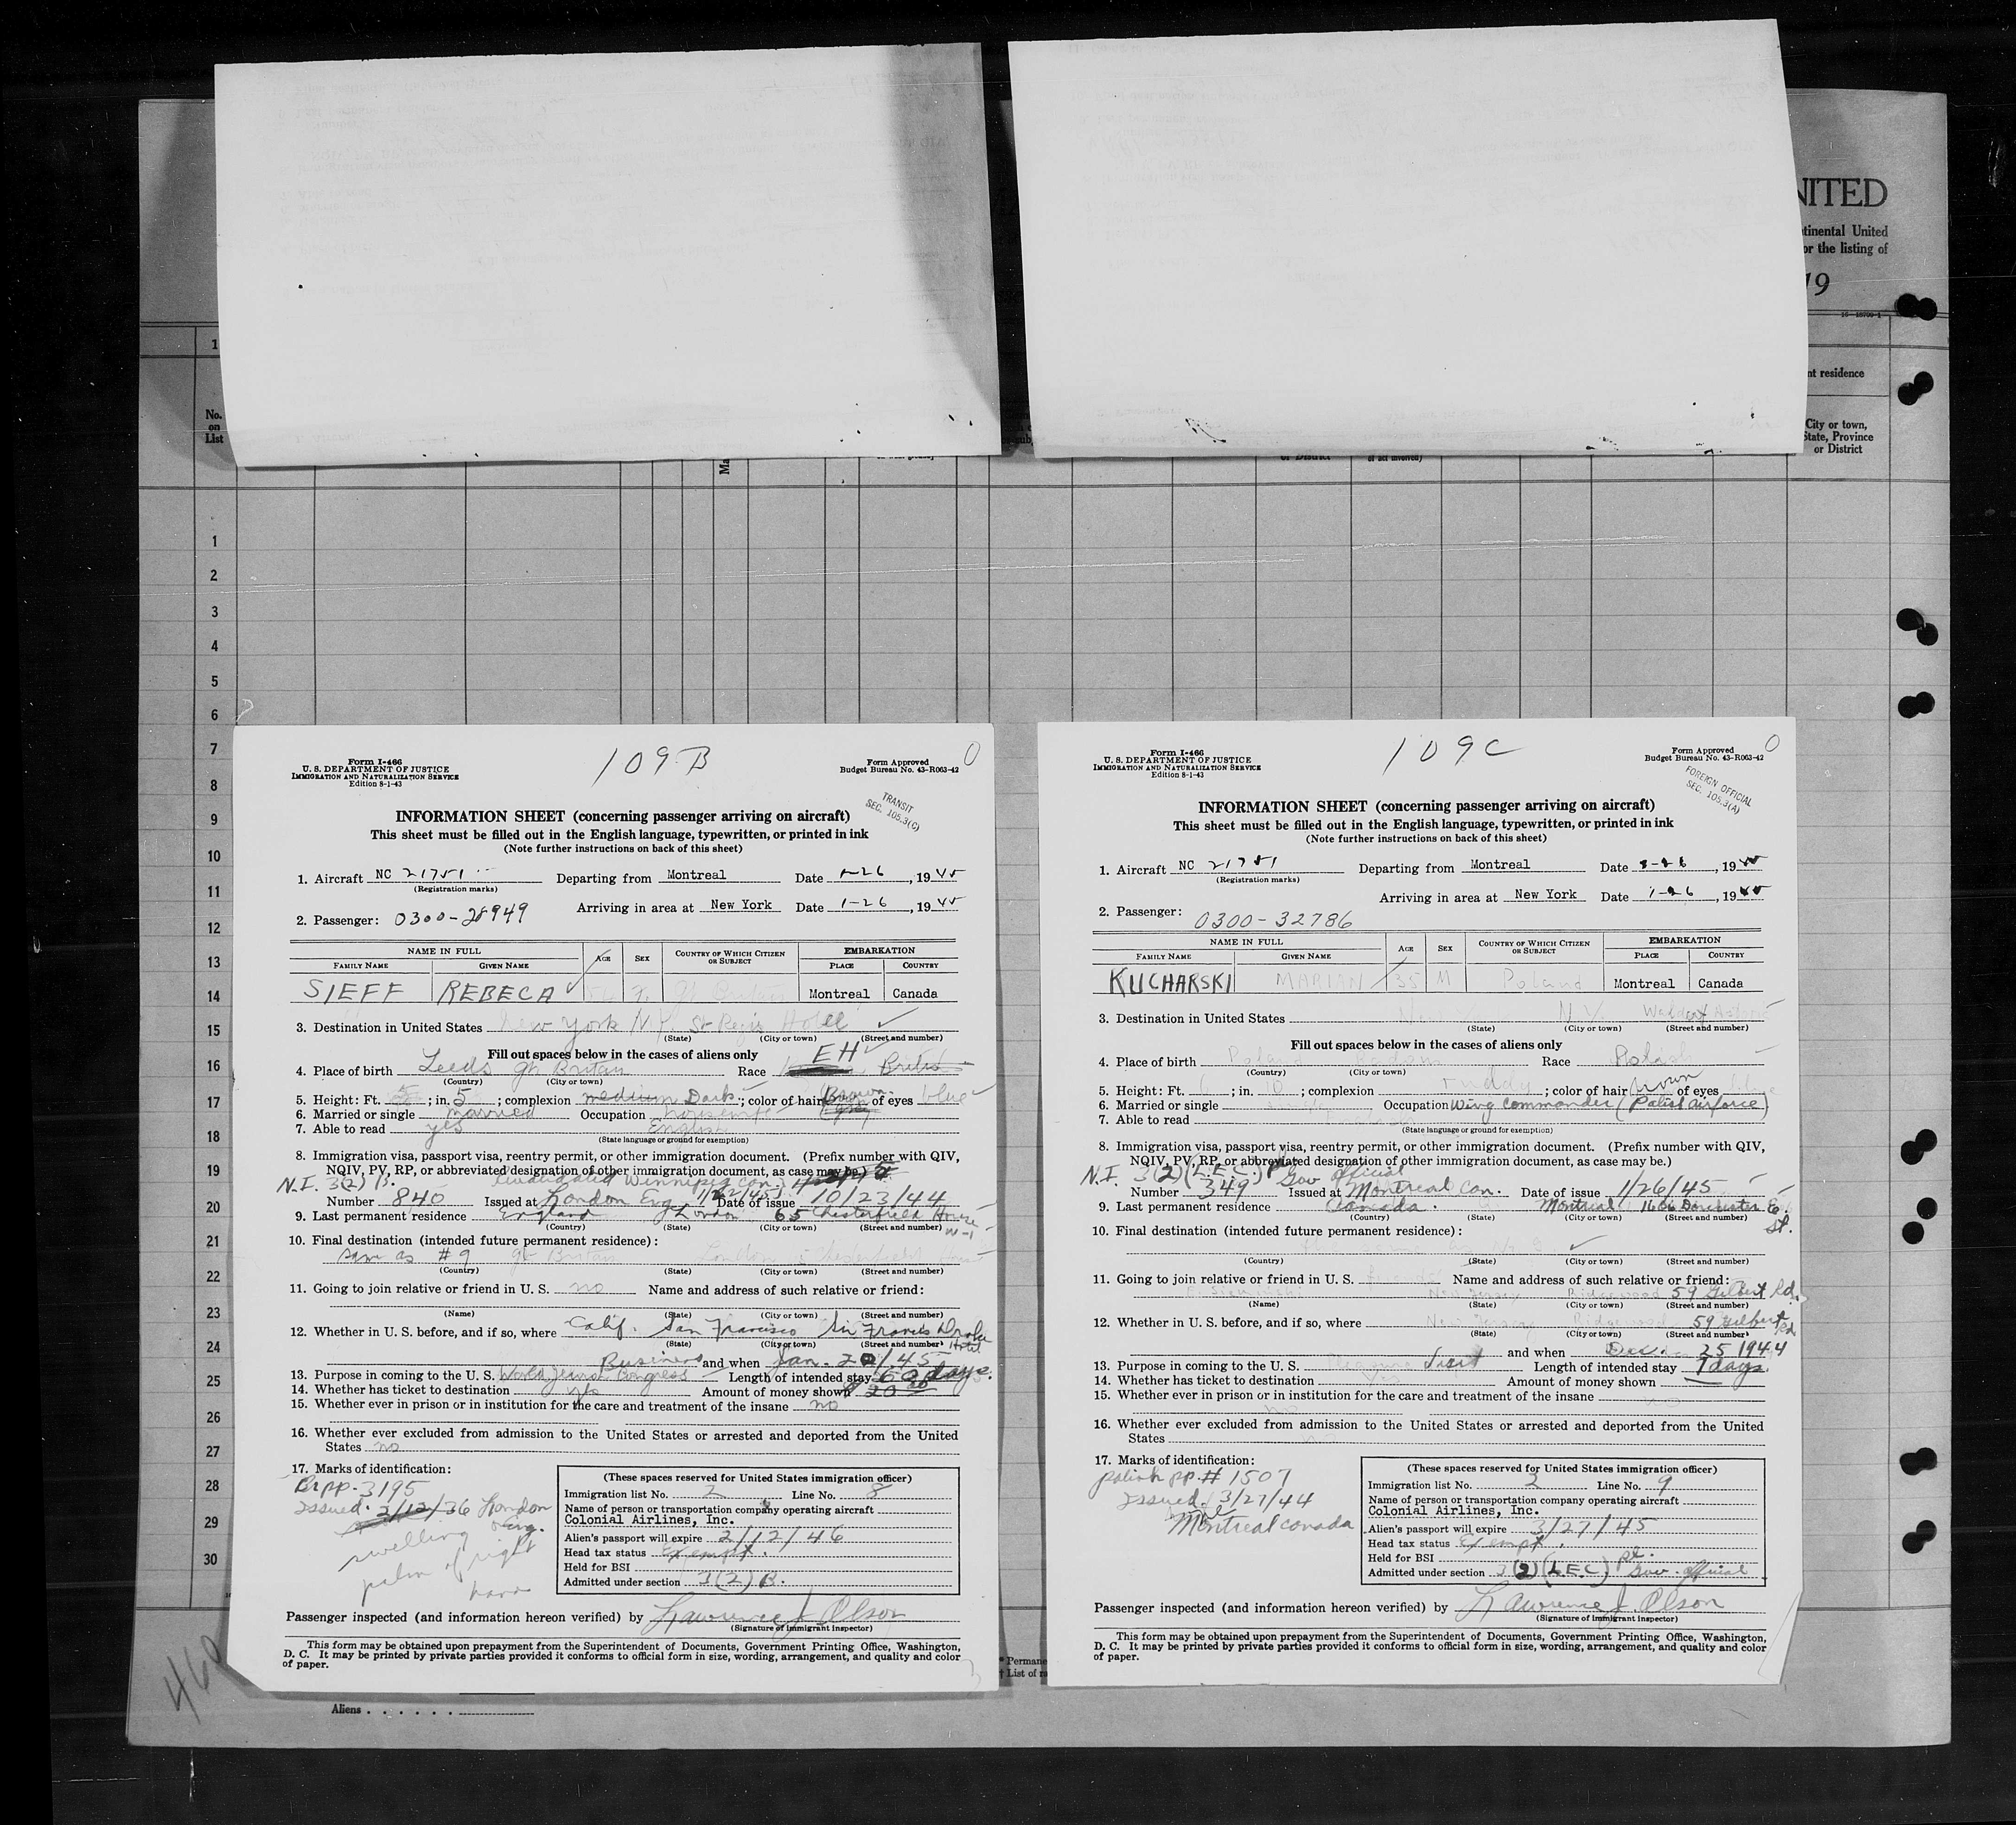 UNITED
Continental United
or the listing of
19
No.
on
List
City or town,
State, Province
or District
1
2
3
4
5
6
7
8
9
10
11
12
13
14
15
16
17
18
19
20
21
22
23
24
25
26
27
28
29
30
Form I-466
U. S. DEPARTMENT OF JUSTICE
IMMIGRATION AND NATURALIZATION SERVICE
Edition 8-1-43
109 B
Form Approved
Budget Bureau No. 43-R063-42
0
TRANSIT
SEC. 105.3(C)
INFORMATION SHEET (concerning passenger arriving on aircraft)
This sheet must be filled out in the English language, typewritten, or printed in ink
(Note further instructions on back of this sheet)
1. Aircraft NC 21751 Departing from Montreal Date 1-26, 1945
(Registration marks)
Arriving in area at New York Date 1-26, 1945
2. Passenger: 0300-28949
NAME IN FULL AGE SEX COUNTRY OF WHICH CITIZEN OR SUBJECT EMBARKATION
FAMILY NAME GIVEN NAME PLACE COUNTRY
SIEFF REBECA F Gt Britain Montreal Canada
3. Destination in United States New York N.Y. St Regis Hotel
(State) (City or town) (Street and number)
Fill out spaces below in the cases of aliens only
EH
4. Place of birth Leeds Gt Britain Race British
(Country) (City or town)
5. Height: Ft. 5; in. 5; complexion medium Dark; color of hair Brown of eyes blue
6. Married or single married Occupation housewife
7. Able to read yes English
(State language or ground for exemption)
8. Immigration visa, passport visa, reentry permit, or other immigration document. (Prefix number with QIV,
NQIV, PV, RP, or abbreviated designation of other immigration document, as case may be.)
N.I. 3(2) B. Winnipeg Con. 1/22/45
Number 840 Issued at London Eng. Date of issue 10/23/44
9. Last permanent residence England London 65 Chesterfield House W-1
(Country) (State) (City or town) (Street and number)
10. Final destination (intended future permanent residence):
same as #9 Gt Britain London Chesterfield House
(Country) (State) (City or town) (Street and number)
11. Going to join relative or friend in U. S. no Name and address of such relative or friend:
(Name) (State) (City or town) (Street and number)
12. Whether in U. S. before, and if so, where Calif. San Francisco Sir Francis Drake Hotel
(State) (City or town) (Street and number)
and when Jan. 20/45
13. Purpose in coming to the U. S. Business World Jewish Congress Length of intended stay 60 days.
14. Whether has ticket to destination yes Amount of money shown $20.00
15. Whether ever in prison or in institution for the care and treatment of the insane no
16. Whether ever excluded from admission to the United States or arrested and deported from the United
States no
17. Marks of identification:
Br pp. 3195
Issued. 2/12/36 London Eng.
swelling
palm of right
hand
(These spaces reserved for United States immigration officer)
Immigration list No. 2 Line No. 8
Name of person or transportation company operating aircraft
Colonial Airlines, Inc.
Alien's passport will expire 2/12/46
Head tax status Exempt.
Held for BSI
Admitted under section 3(2) B.
Passenger inspected (and information hereon verified) by Lawrence J. Olson
(Signature of immigrant inspector)
This form may be obtained upon prepayment from the Superintendent of Documents, Government Printing Office, Washington,
D. C. It may be printed by private parties provided it conforms to official form in size, wording, arrangement, and quality and color
of paper.
Form I-466
U. S. DEPARTMENT OF JUSTICE
IMMIGRATION AND NATURALIZATION SERVICE
Edition 8-1-43
109 C
Form Approved
Budget Bureau No. 43-R063-42
0
FOREIGN OFFICIAL
SEC. 105.3(A)
INFORMATION SHEET (concerning passenger arriving on aircraft)
This sheet must be filled out in the English language, typewritten, or printed in ink
(Note further instructions on back of this sheet)
1. Aircraft NC 21751 Departing from Montreal Date 1-26, 1945
(Registration marks)
Arriving in area at New York Date 1-26, 1945
2. Passenger: 0300-32786
NAME IN FULL AGE SEX COUNTRY OF WHICH CITIZEN OR SUBJECT EMBARKATION
FAMILY NAME GIVEN NAME PLACE COUNTRY
KUCHARSKI MARIAN 35 M Poland Montreal Canada
3. Destination in United States N.Y. Waldorf Astoria
(State) (City or town) (Street and number)
Fill out spaces below in the cases of aliens only
4. Place of birth Poland Race Polish
(Country) (City or town)
5. Height: Ft. ; in. 10; complexion ruddy; color of hair brown of eyes
6. Married or single Occupation Wing Commander (Polish air force)
7. Able to read
(State language or ground for exemption)
8. Immigration visa, passport visa, reentry permit, or other immigration document. (Prefix number with QIV,
NQIV, PV, RP, or abbreviated designation of other immigration document, as case may be.)
N.I. 3(2) (L.E.C.) Pl. Gov official
Number 349 Issued at Montreal Con. Date of issue 1/26/45
9. Last permanent residence Canada. Montreal 1606 Dorchester St.
(Country) (State) (City or town) (Street and number)
10. Final destination (intended future permanent residence):
(Country) (State) (City or town) (Street and number)
11. Going to join relative or friend in U. S. friend Name and address of such relative or friend:
New Jersey Ridgewood 59 Gilbert Rd.
(Name) (State) (City or town) (Street and number)
12. Whether in U. S. before, and if so, where New Jersey Ridgewood 59 Gilbert Rd
(State) (City or town) (Street and number)
and when Dec. 25 1944
13. Purpose in coming to the U. S. Visit Length of intended stay 7 days.
14. Whether has ticket to destination Amount of money shown
15. Whether ever in prison or in institution for the care and treatment of the insane no
16. Whether ever excluded from admission to the United States or arrested and deported from the United
States no
17. Marks of identification:
polish pp. # 1507
Issued. 3/27/44
Montreal Canada
(These spaces reserved for United States immigration officer)
Immigration list No. 2 Line No. 9
Name of person or transportation company operating aircraft
Colonial Airlines, Inc.
Alien's passport will expire 3/27/45
Head tax status Exempt.
Held for BSI
Admitted under section 3(2) (L.E.C.) Pl. Gov. official
Passenger inspected (and information hereon verified) by Lawrence J. Olson
(Signature of immigrant inspector)
This form may be obtained upon prepayment from the Superintendent of Documents, Government Printing Office, Washington,
D. C. It may be printed by private parties provided it conforms to official form in size, wording, arrangement, and quality and color
of paper.
460
* Permane
† List of ra
Aliens . . . . . .